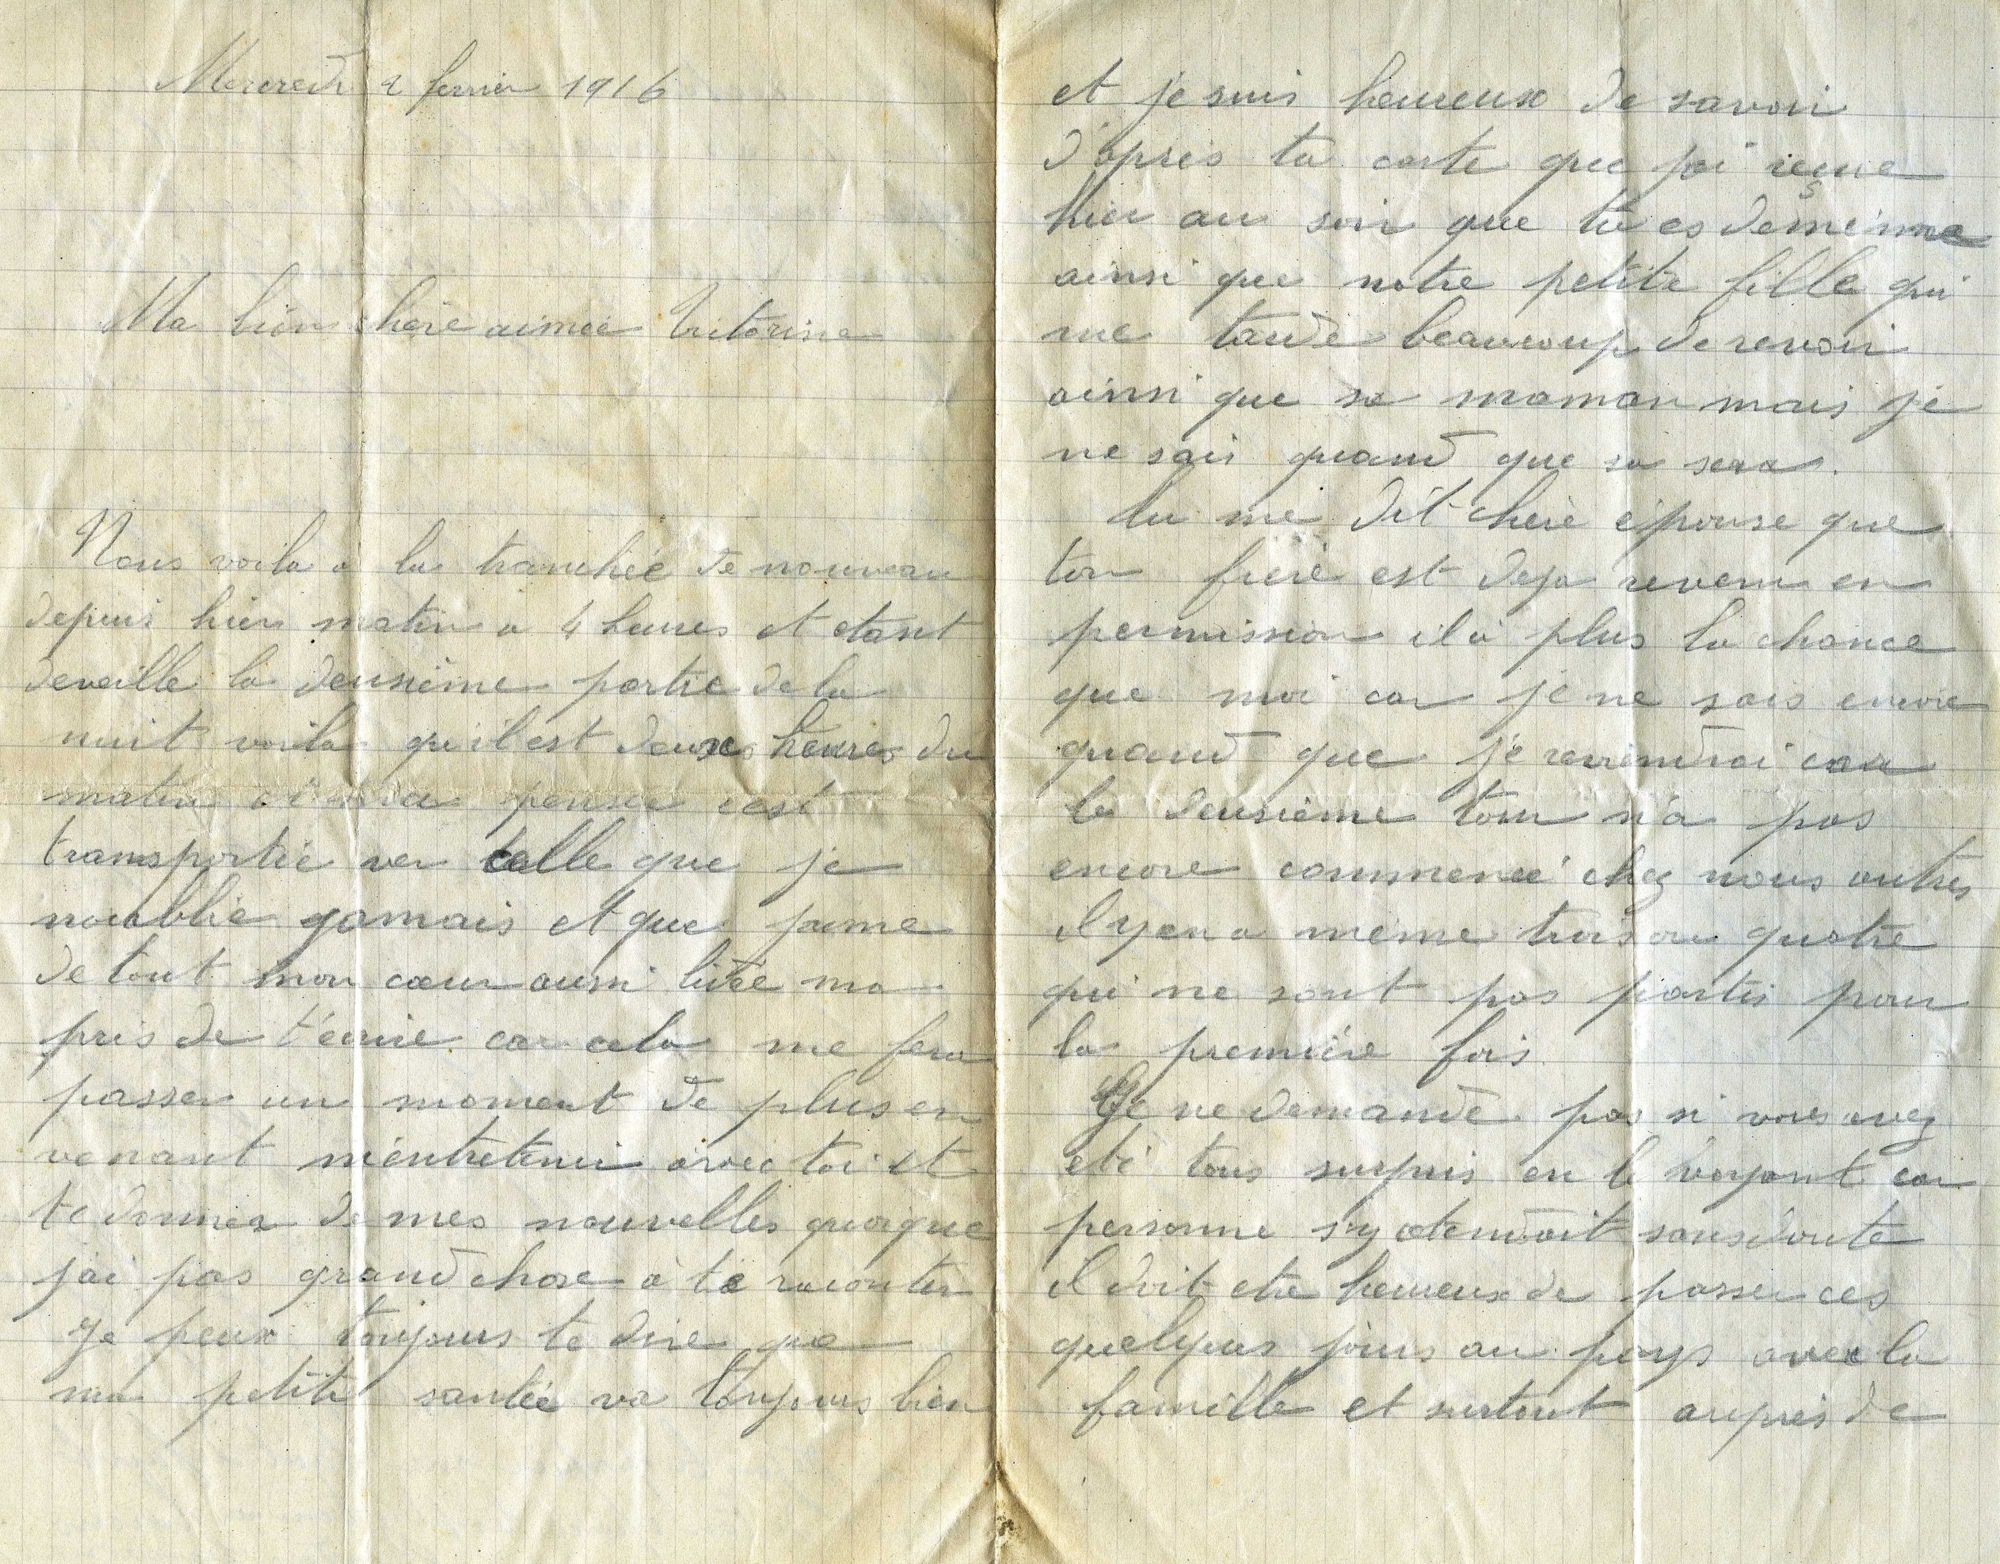 Mercredi 2 fevrier 1916
Ma bien chère aimée Victorine
Nous voila a la tranchée de nouveau
depuis hier matin a 4 heures et etant
deveille la deuxième partie de la
nuit voila qu'il est deuxes heures du
matin et ma pensée c'est
transportée ver celle que je
noublie jamais et que jaime
de tout mon cœur aussi lidée ma
pris de t'écrire car cela me fera
passer un moment de plus en
venant m'entretenir avec toi et
te donner de mes nouvelles quoique
jai pas grand chose à te raconter
je peux toujours te dire que
ma petite santée va toujours bien
et je suis heureux de savoir
d'apres ta carte que jai reçue
hier au soir que tu es de même
ainsi que notre petite fille qui
me tarde beaucoup de revoir
ainsi que sa maman mais je
ne sais quand que sa sera.
Tu me dit chère épouse que
ton frère est deja revenu en
permission il a plus la chance
que moi car je ne sais encore
quand que je reviendrai car
le deuxième tour n'a pas
encore commencé chez nous autres
il y en a même trois ou quatre
qui ne sont pas partis pour
la première fois.
Je ne demande pas si vous avez
été tous surpris en le voyant car
personne s'y atendait sans doute
il doit etre heureux de passer ces
quelques jours au pays avec la
famille et surtout auprès de